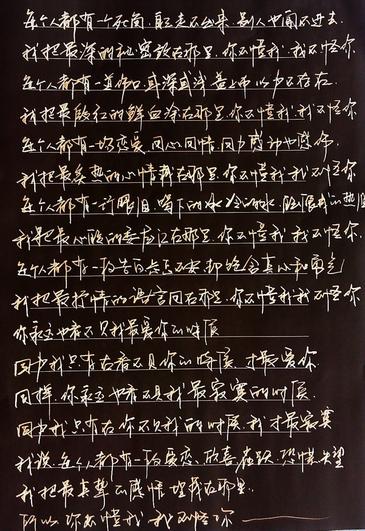 每个人都有一个死角,自己走不出来,别人也闯不进去.
我把最深的秘密放在那里.你不懂我,我不怪你.
每个人都有一道伤口,或深或浅,盖上布,以为不存在.
我把最殷红的鲜血涂在那里.你不懂我,我不怪你
每个人都有一场恋爱,用心、用情、用力,感动也感伤.
我把最炙热的心情藏在那里.你不懂我,我不怪你
每个人都有一行眼泪,喝下的冰冷的水,酝酿成的热泪
我把最心酸的委屈汇在那里.你不懂我,我不怪你.
每个人都有一段告白,忐忑不安,却饱含真心和勇气
我把最抒情的语言用在那里.你不懂我,我不怪你
你永远也看不见我最爱你的时候
因为我只有在看不见你的时候,才最爱你.
同样,你永远也看不见我最寂寞的时候.
因为我只有在你不见我的时候,我才最寂寞
我说,每个人都有一段爱恋,欣喜、雀跃、恐惧、失望
我把最真挚的感情埋藏在那里.
所以,你不懂我,我不怪你